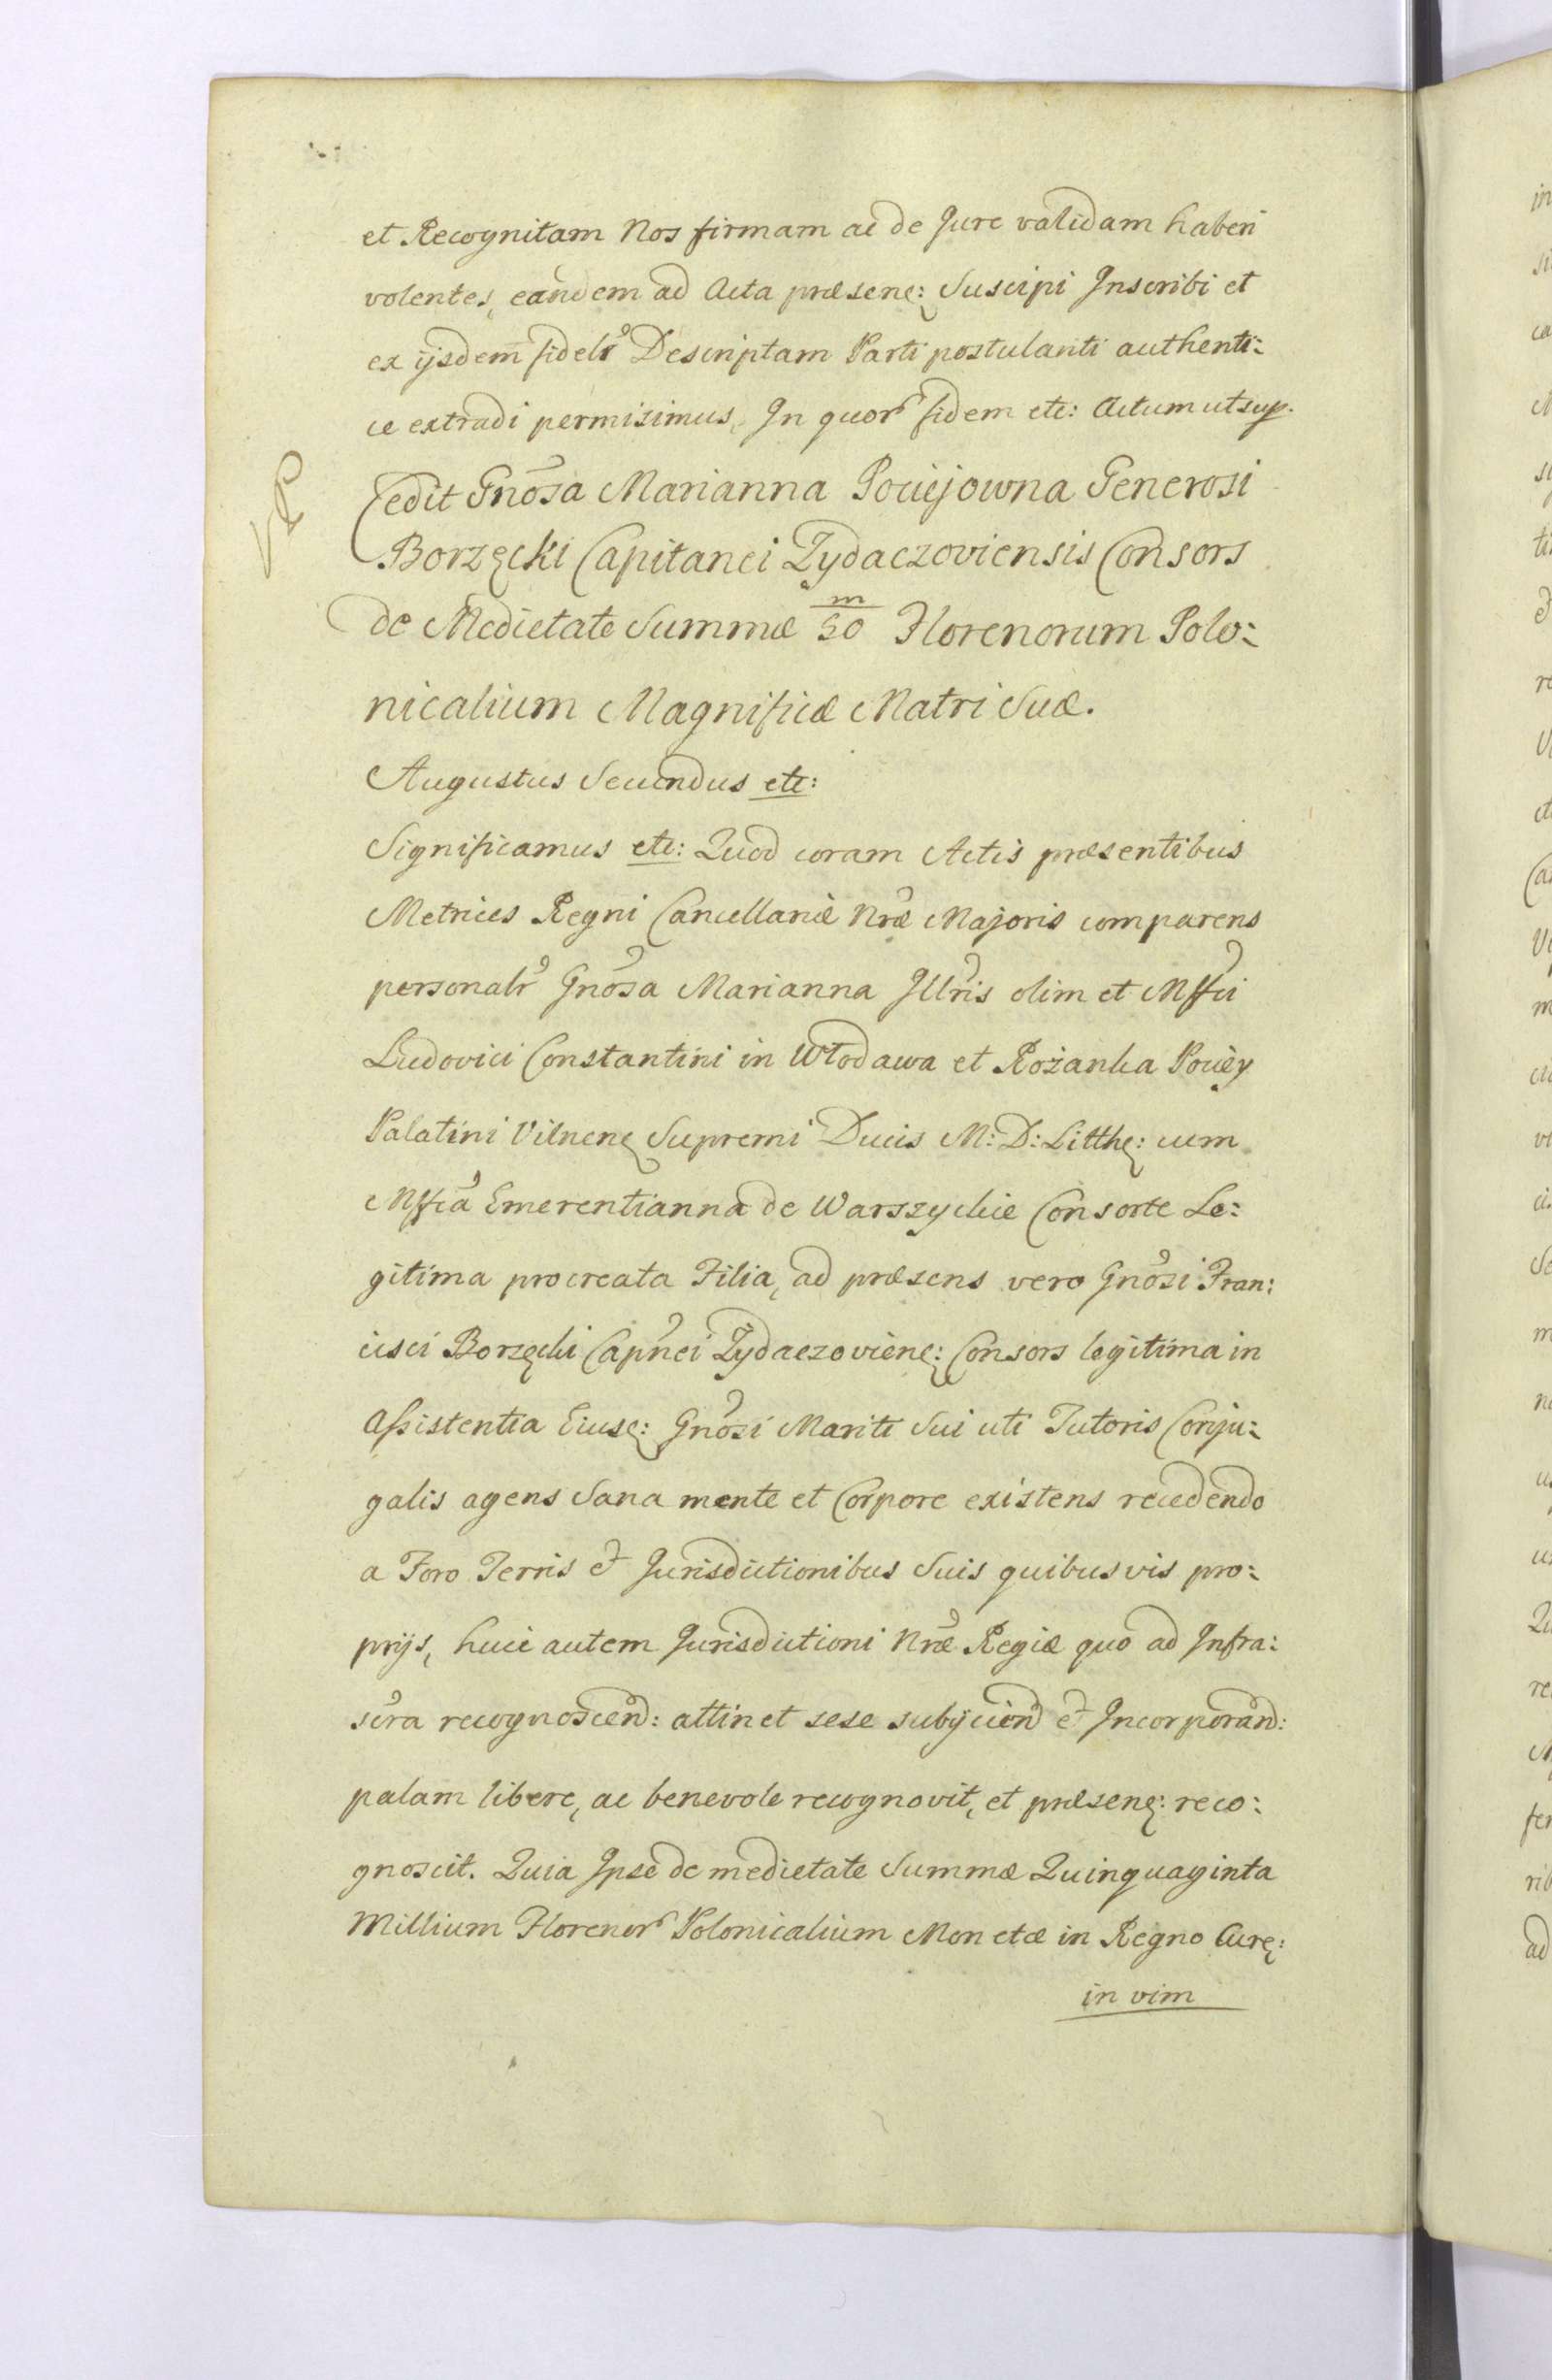 et Recognitam Nos firmam ac de Jure validam haberi
volentes, eandem ad Acta præsenę: Suscipi Inscribi et
ex ijsdem fidelr Descriptam Parti postulanti authenti:
ce extradi permisimus, In quor fidem etc: Actum ut sup.
Cedit Gnosa Marianna Pociejowna Generosi
Borzęcki Capitanei Zydaczoviensis Consors
de Medietate Summæ 50 m Florenorum Polo:
nicalium Magnificæ Matri Suæ.
Augustus Secundus etc:
Significamus etc: Quod coram Actis præsentibus
Metrices Regni Cancellariæ Nræ Majoris comparens
personalr Gnosa Marianna Jllris olim et Mffci
Ludovici Constantini in Włodawa et Rożanka Pociey
Palatini Vilnenę Supremi Ducis M: D: Litthę: cum
Mffca Emerentianna de Warszyckie Consorte Le:
gitima procreata Filia, ad præsens vero Gnosi Fran:
cisci Borzęcki Capnei Zydaczovienę: Consors legitima in
Assistentia Eiusę: Gnosi Mariti Sui uti Tutoris Conju:
galis agens Sana mente et Corpore existens recedendo
a Foro Terris et Jurisdictionibus Suis quibusvis pro:
prijs, huic autem Jurisdictioni Nræ Regiæ quo ad Infra:
scra recognoscend: attinet sese subijciend et Incorporand:
palam libere, ac benevole recognovit, et præsenę: reco:
gnoscit. Quia Ipse de medietate Summæ Quinquaginta
Millium Florenor Polonicalium Monetæ in Regno Curę:
in vim